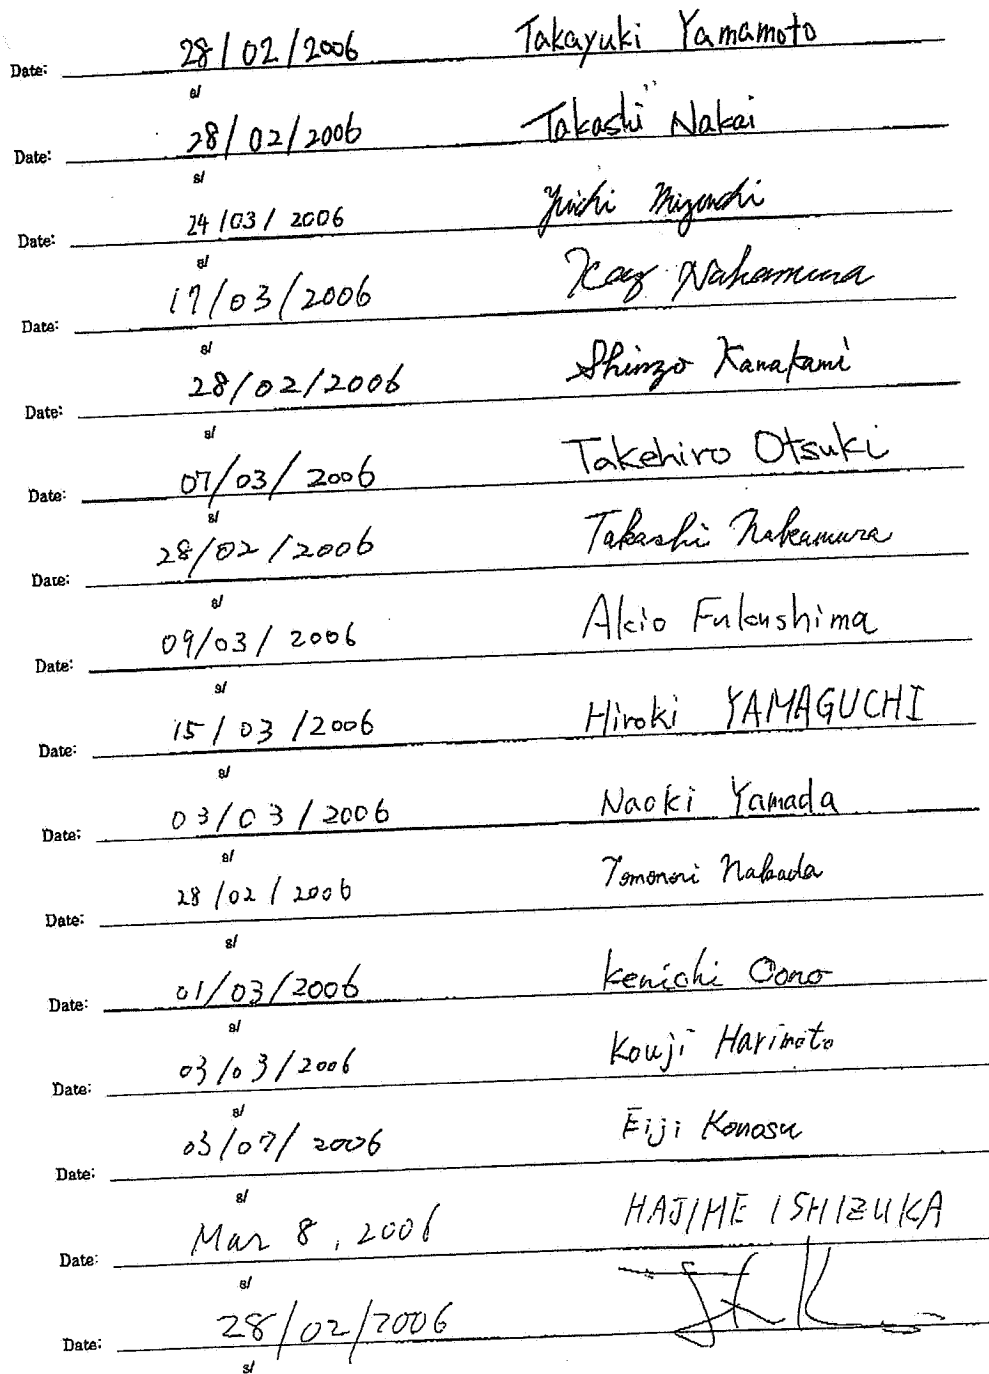 Date: 28/02/2006 Takayuki Yamamoto
s/
Date: 28/02/2006 Takashi Nakai
s/
Date: 24/03/2006 Yuichi Mizuuchi
s/
Date: 17/03/2006 Kay Nakamura
s/
Date: 28/02/2006 Shinzo Kanakami
s/
Date: 07/03/2006 Takehiro Otsuki
s/
Date: 28/02/2006 Takashi Nakamura
s/
Date: 09/03/2006 Akio Fukushima
s/
Date: 15/03/2006 Hiroki YAMAGUCHI
s/
Date: 03/03/2006 Naoki Yamada
s/
Date: 28/02/2006 Tomonori Nakada
s/
Date: 01/03/2006 Kenichi Oono
s/
Date: 03/03/2006 Kouji Harimoto
s/
Date: 03/07/2006 Eiji Konosu
s/
Date: Mar 8, 2006 HAJIME ISHIZUKA
s/
Date: 28/02/2006
s/